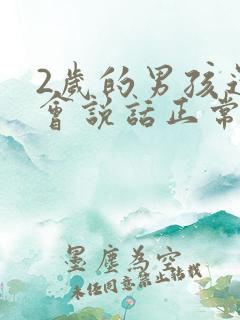 2歲的男孩
會說話正常
墨塵為空
未经同意禁止转载